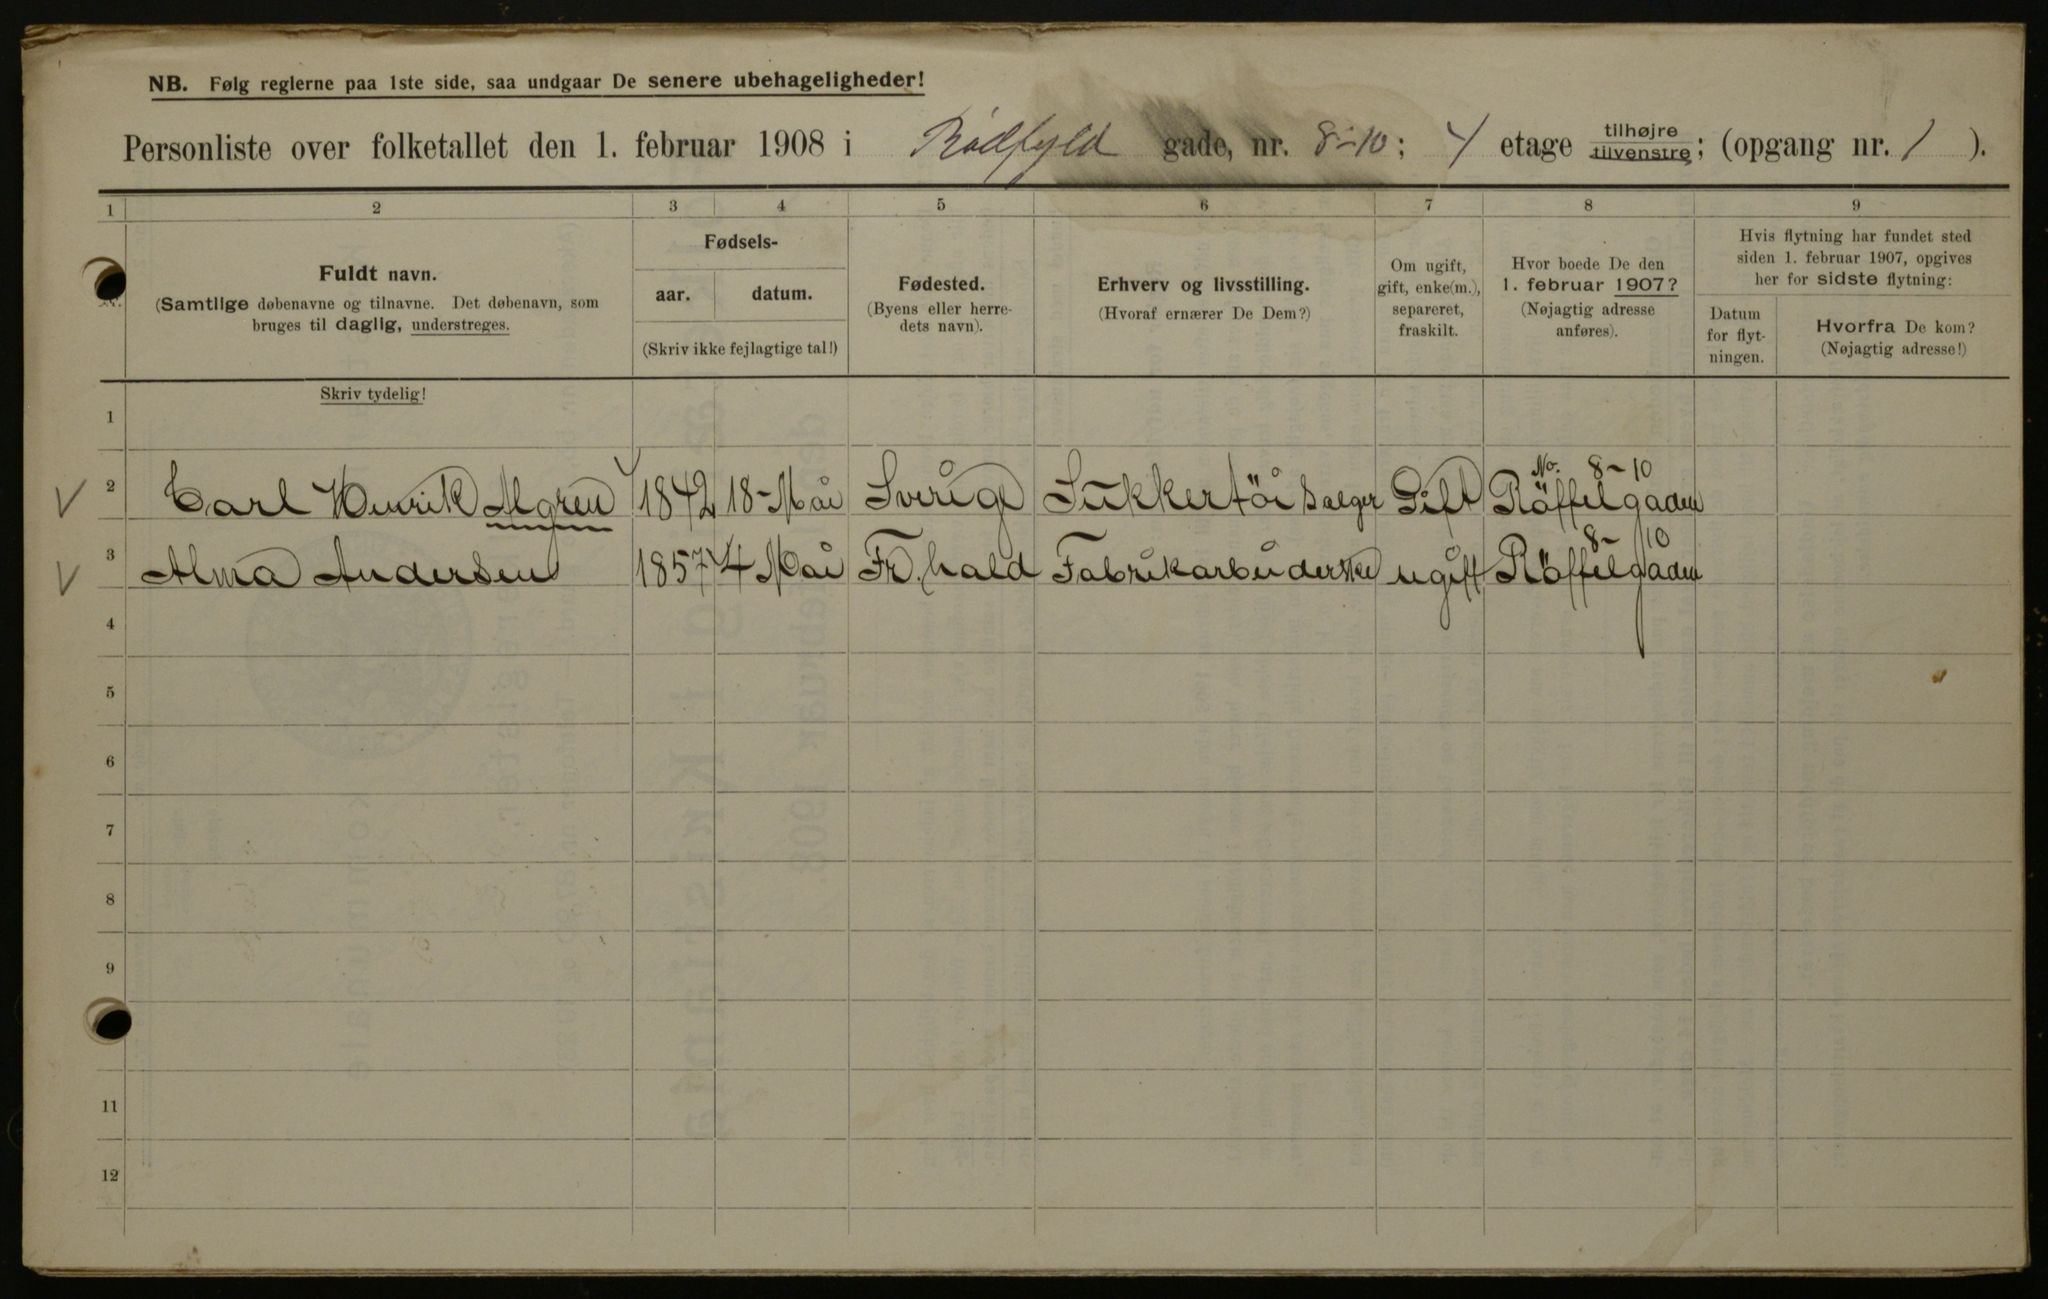 NB. Følg reglerne paa 1ste side, saa undgaar De senere ubehageligheder!
Personliste over folketallet den 1. februar 1908 i Rödfyld gade, nr. 8-10; 4 etage tilhøjre tilvenstre; (opgang nr. 1 ).
1 2 3 4 5 6 7 8 9
Fuldt navn.
(Samtlige døbenavne og tilnavne. Det døbenavn, som
bruges til daglig, understreges.
Fødsels-
aar. datum.
(Skriv ikke fejlagtige tal!)
Fødested.
(Byens eller herre-
dets navn).
Erhverv og livsstilling.
(Hvoraf ernærer De Dem?)
Om ugift,
gift, enke(m.),
separeret,
fraskilt.
Hvor boede De den
1. februar 1907?
(Nøjagtig adresse
anføres).
Hvis flytning har fundet sted
siden 1. februar 1907, opgives
her for sidste flytning:
Datum
for flyt-
ningen.
Hvorfra De kom?
(Nøjagtig adresse!)
Skriv tydelig!
1
2 Carl Henrik Algren 1842 18-Mai Sverige Sukkertöi Sælger Gift No. 8-10 Röffelgaden
3 Alma Andersen 1857 4 Mai Fr.hald Fabrikarbeiderske ugift 8-10 Röffelgaden
4
5
6
7
8
9
11
12